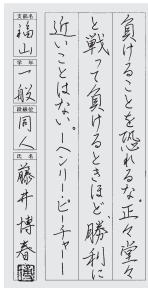 負けることを恐れるな。正々堂々
と戦って負けるときほど、勝利に
近いことはない。ーヘンリー・ピーチャー
支部名
福山
学年
一般
段級位
同人
氏名
藤井博春